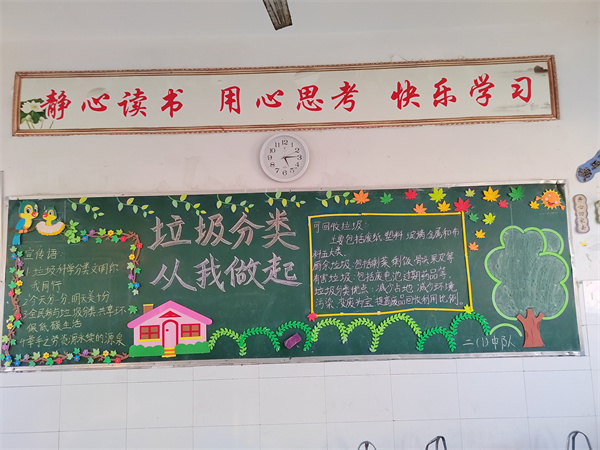 静心读书 用心思考 快乐学习
垃圾分类
从我做起
宣传语
1.垃圾科学分类文明你
我同行
2今天分一分 明天美十分
3全民参与垃圾分类共享环
保低碳生活
可回收垃圾:
主要包括废纸 塑料 玻璃 金属和布
料五大类.
厨余垃圾:包括剩菜 剩饭 骨头 果皮等
有害垃圾:包括废电池过期药品等,
垃圾分类优点:减少占地 减少环境
污染 变废为宝 提高废品回收利用比例.
二(1)中队